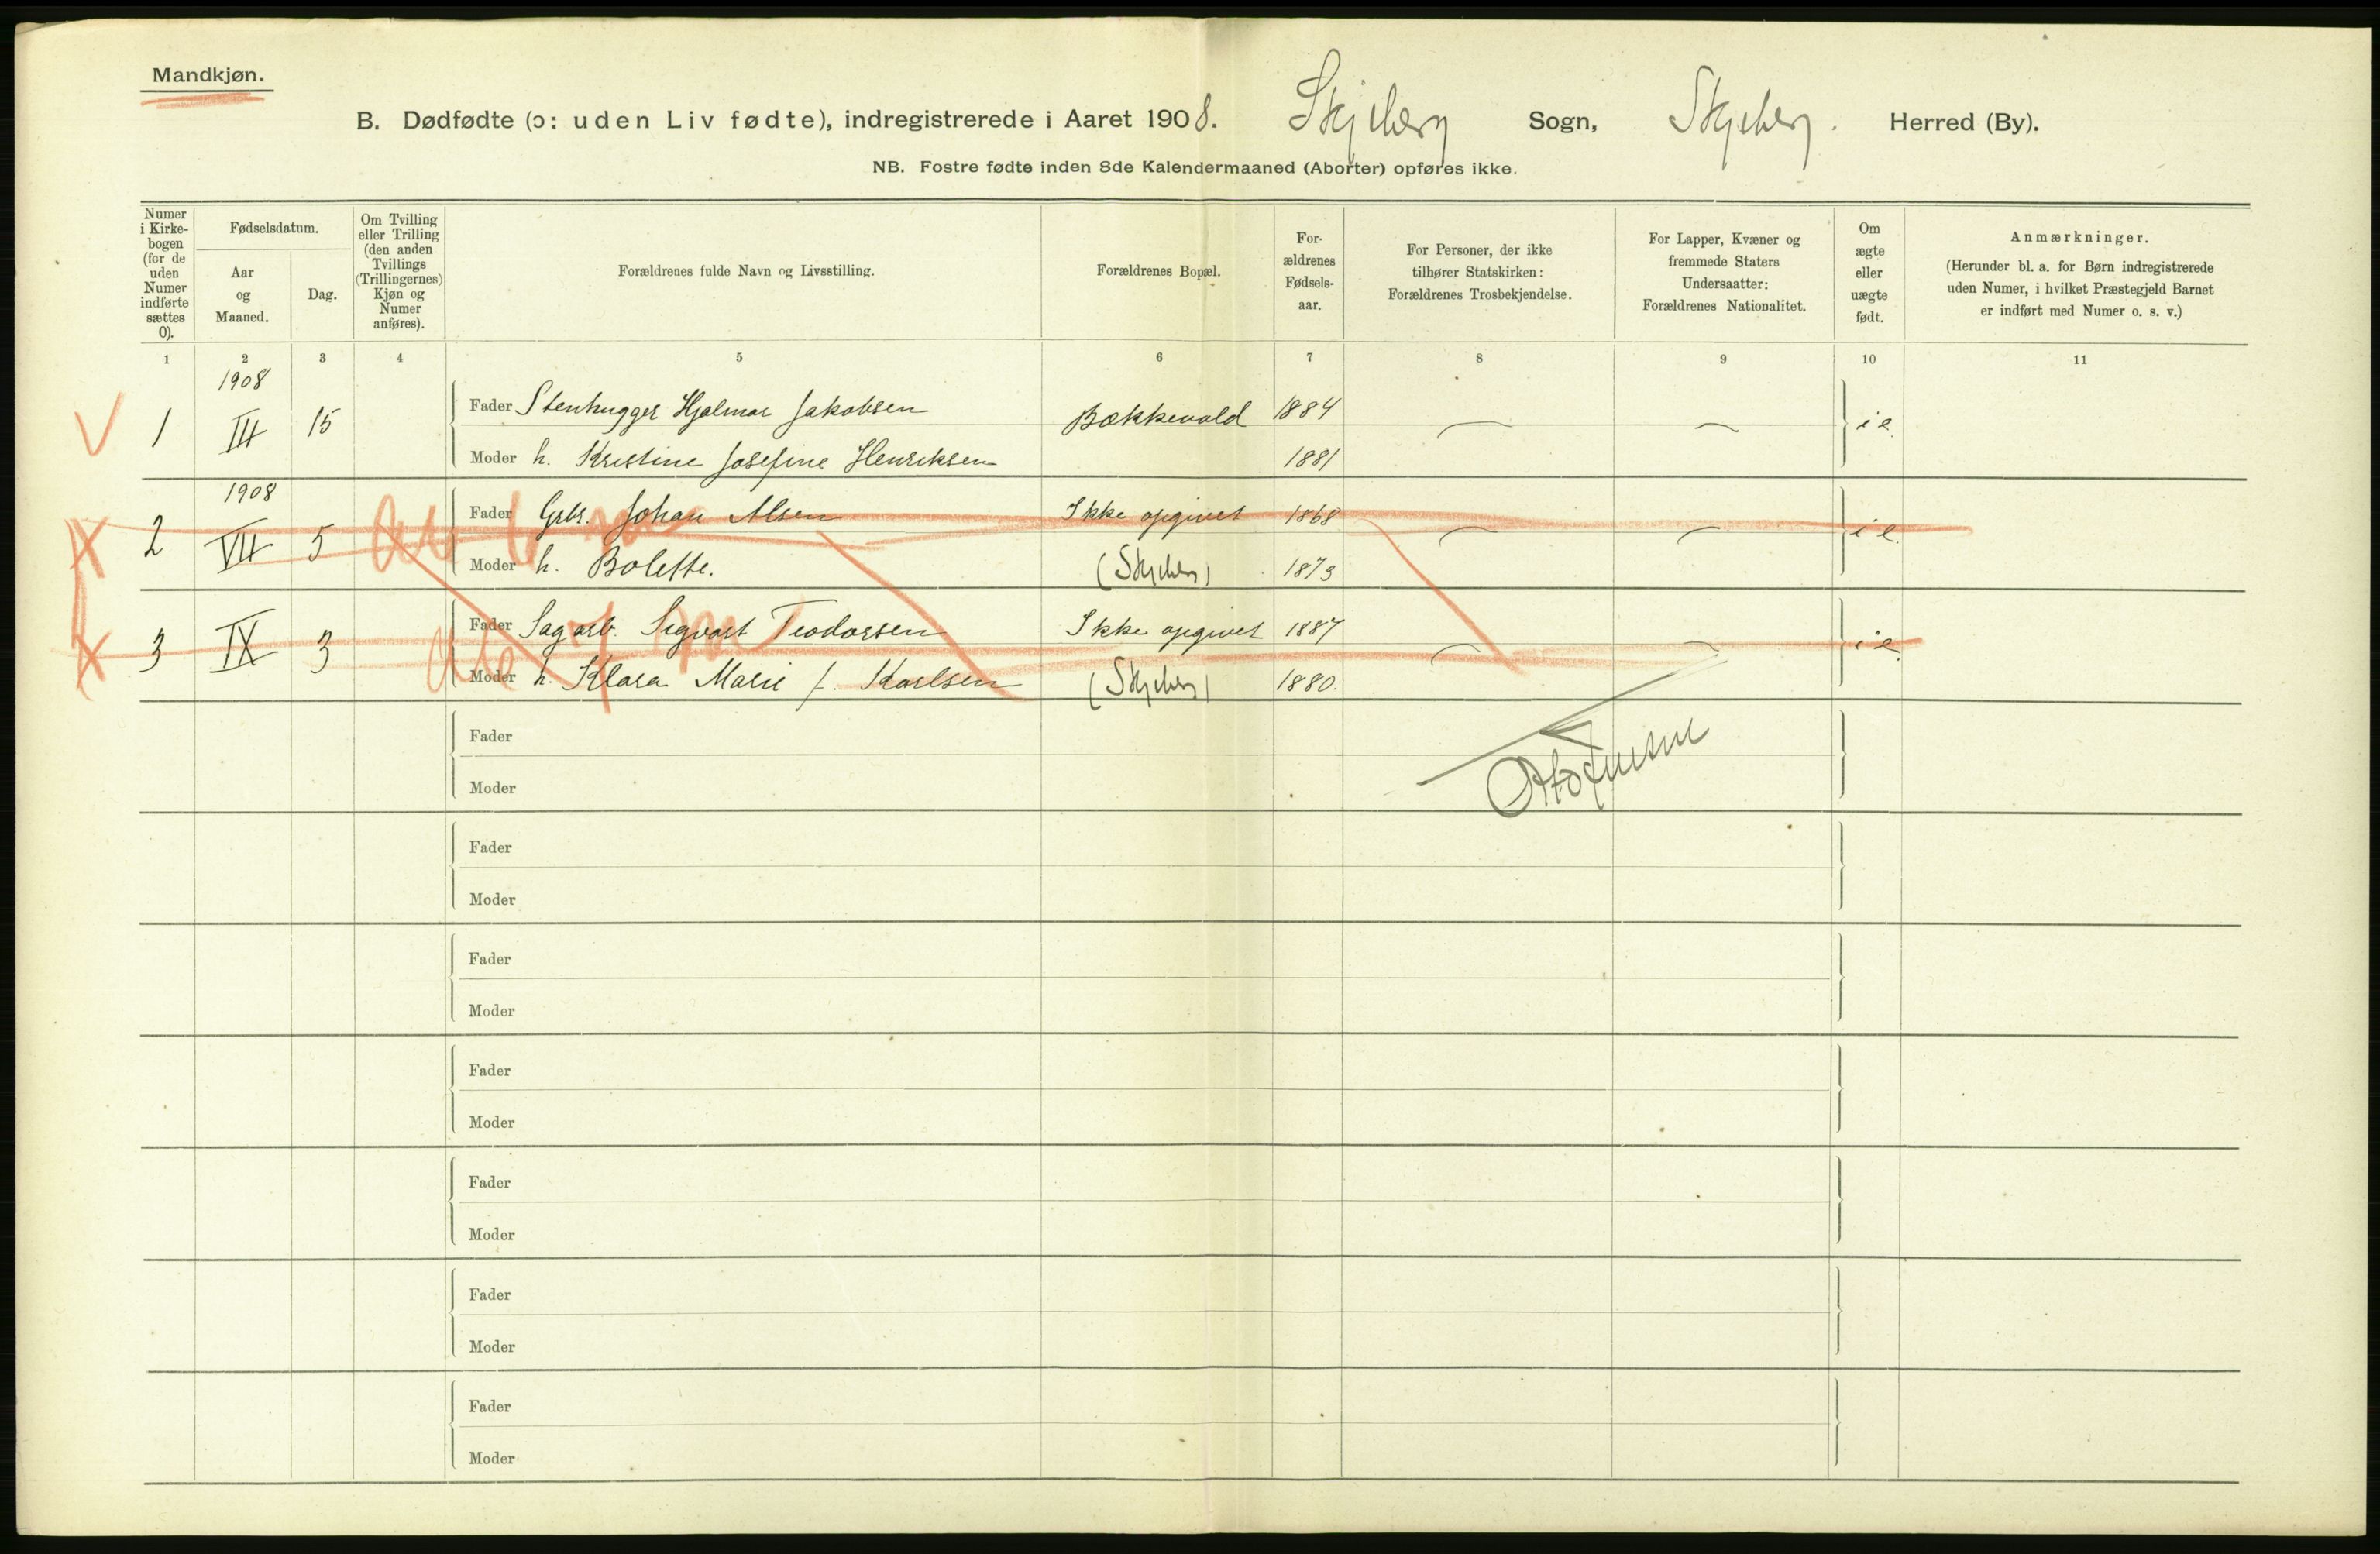 Mandkjøn.
B. Dødfødte (ɔ: uden Liv fødte), indregistrerede i Aaret 1908. Skjeberg Sogn, Skjeberg. Herred (By).
NB. Fostre fødte inden 8de Kalendermaaned (Aborter) opføres ikke.
Numer i Kirke-bogen (for de uden Numer indførte sættes 0).
Fødselsdatum.
Aar og Maaned.
Dag.
Om Tvilling eller Trilling (den anden Tvillings (Trillingernes) Kjøn og Numer anføres).
Forældrenes fulde Navn og Livsstilling.
Forældrenes Bopæl.
For-ældrenes Fødsels-aar.
For Personer, der ikke tilhører Statskirken: Forældrenes Trosbekjendelse.
For Lapper, Kvæner og fremmede Staters Undersaatter: Forældrenes Nationalitet.
Om ægte eller uægte født.
Anmærkninger.
(Herunder bl. a. for Børn indregistrerede uden Numer, i hvilket Præstegjeld Barnet er indført med Numer o. s. v.)
1 2 3 4 5 6 7 8 9 10 11
1908
1 III 15 Fader Stenhugger Hjalmar Jakobsen Bækkevold 1884 i e.
Moder h. Kristine Josefine Henriksen 1881
1908
2 VII 5 Fader Gbr. Johan Alsen Ikke opgivet 1868 i e.
Moder h. Bolette. (Skjeberg) 1873
3 IX 3 Fader Sagarb. Sigvart Teodorsen Ikke opgivet 1887 i e.
Moder h. Klara Marie f. Karlsen (Skjeberg) 1880.
Fader
Moder
Fader
Moder
Fader
Moder
Fader
Moder
Fader
Moder
Fader
Moder
Fader
Moder